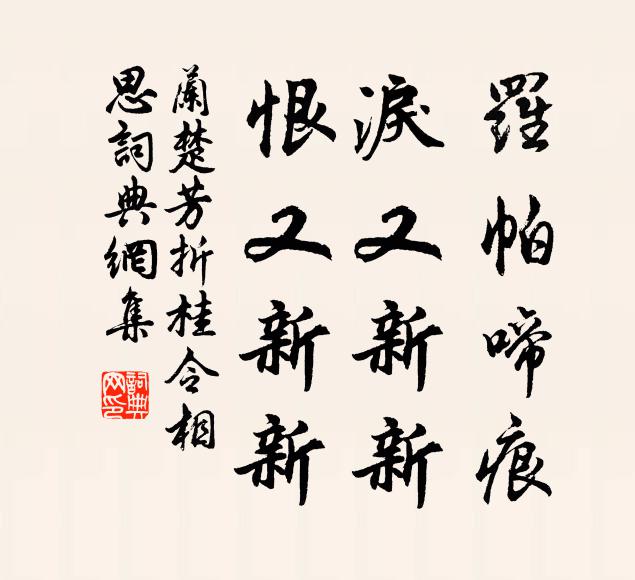 羅帕啼痕
淚又新新
恨又新新
蘭楚芳折桂令相
思詞典網集
詞典
网印